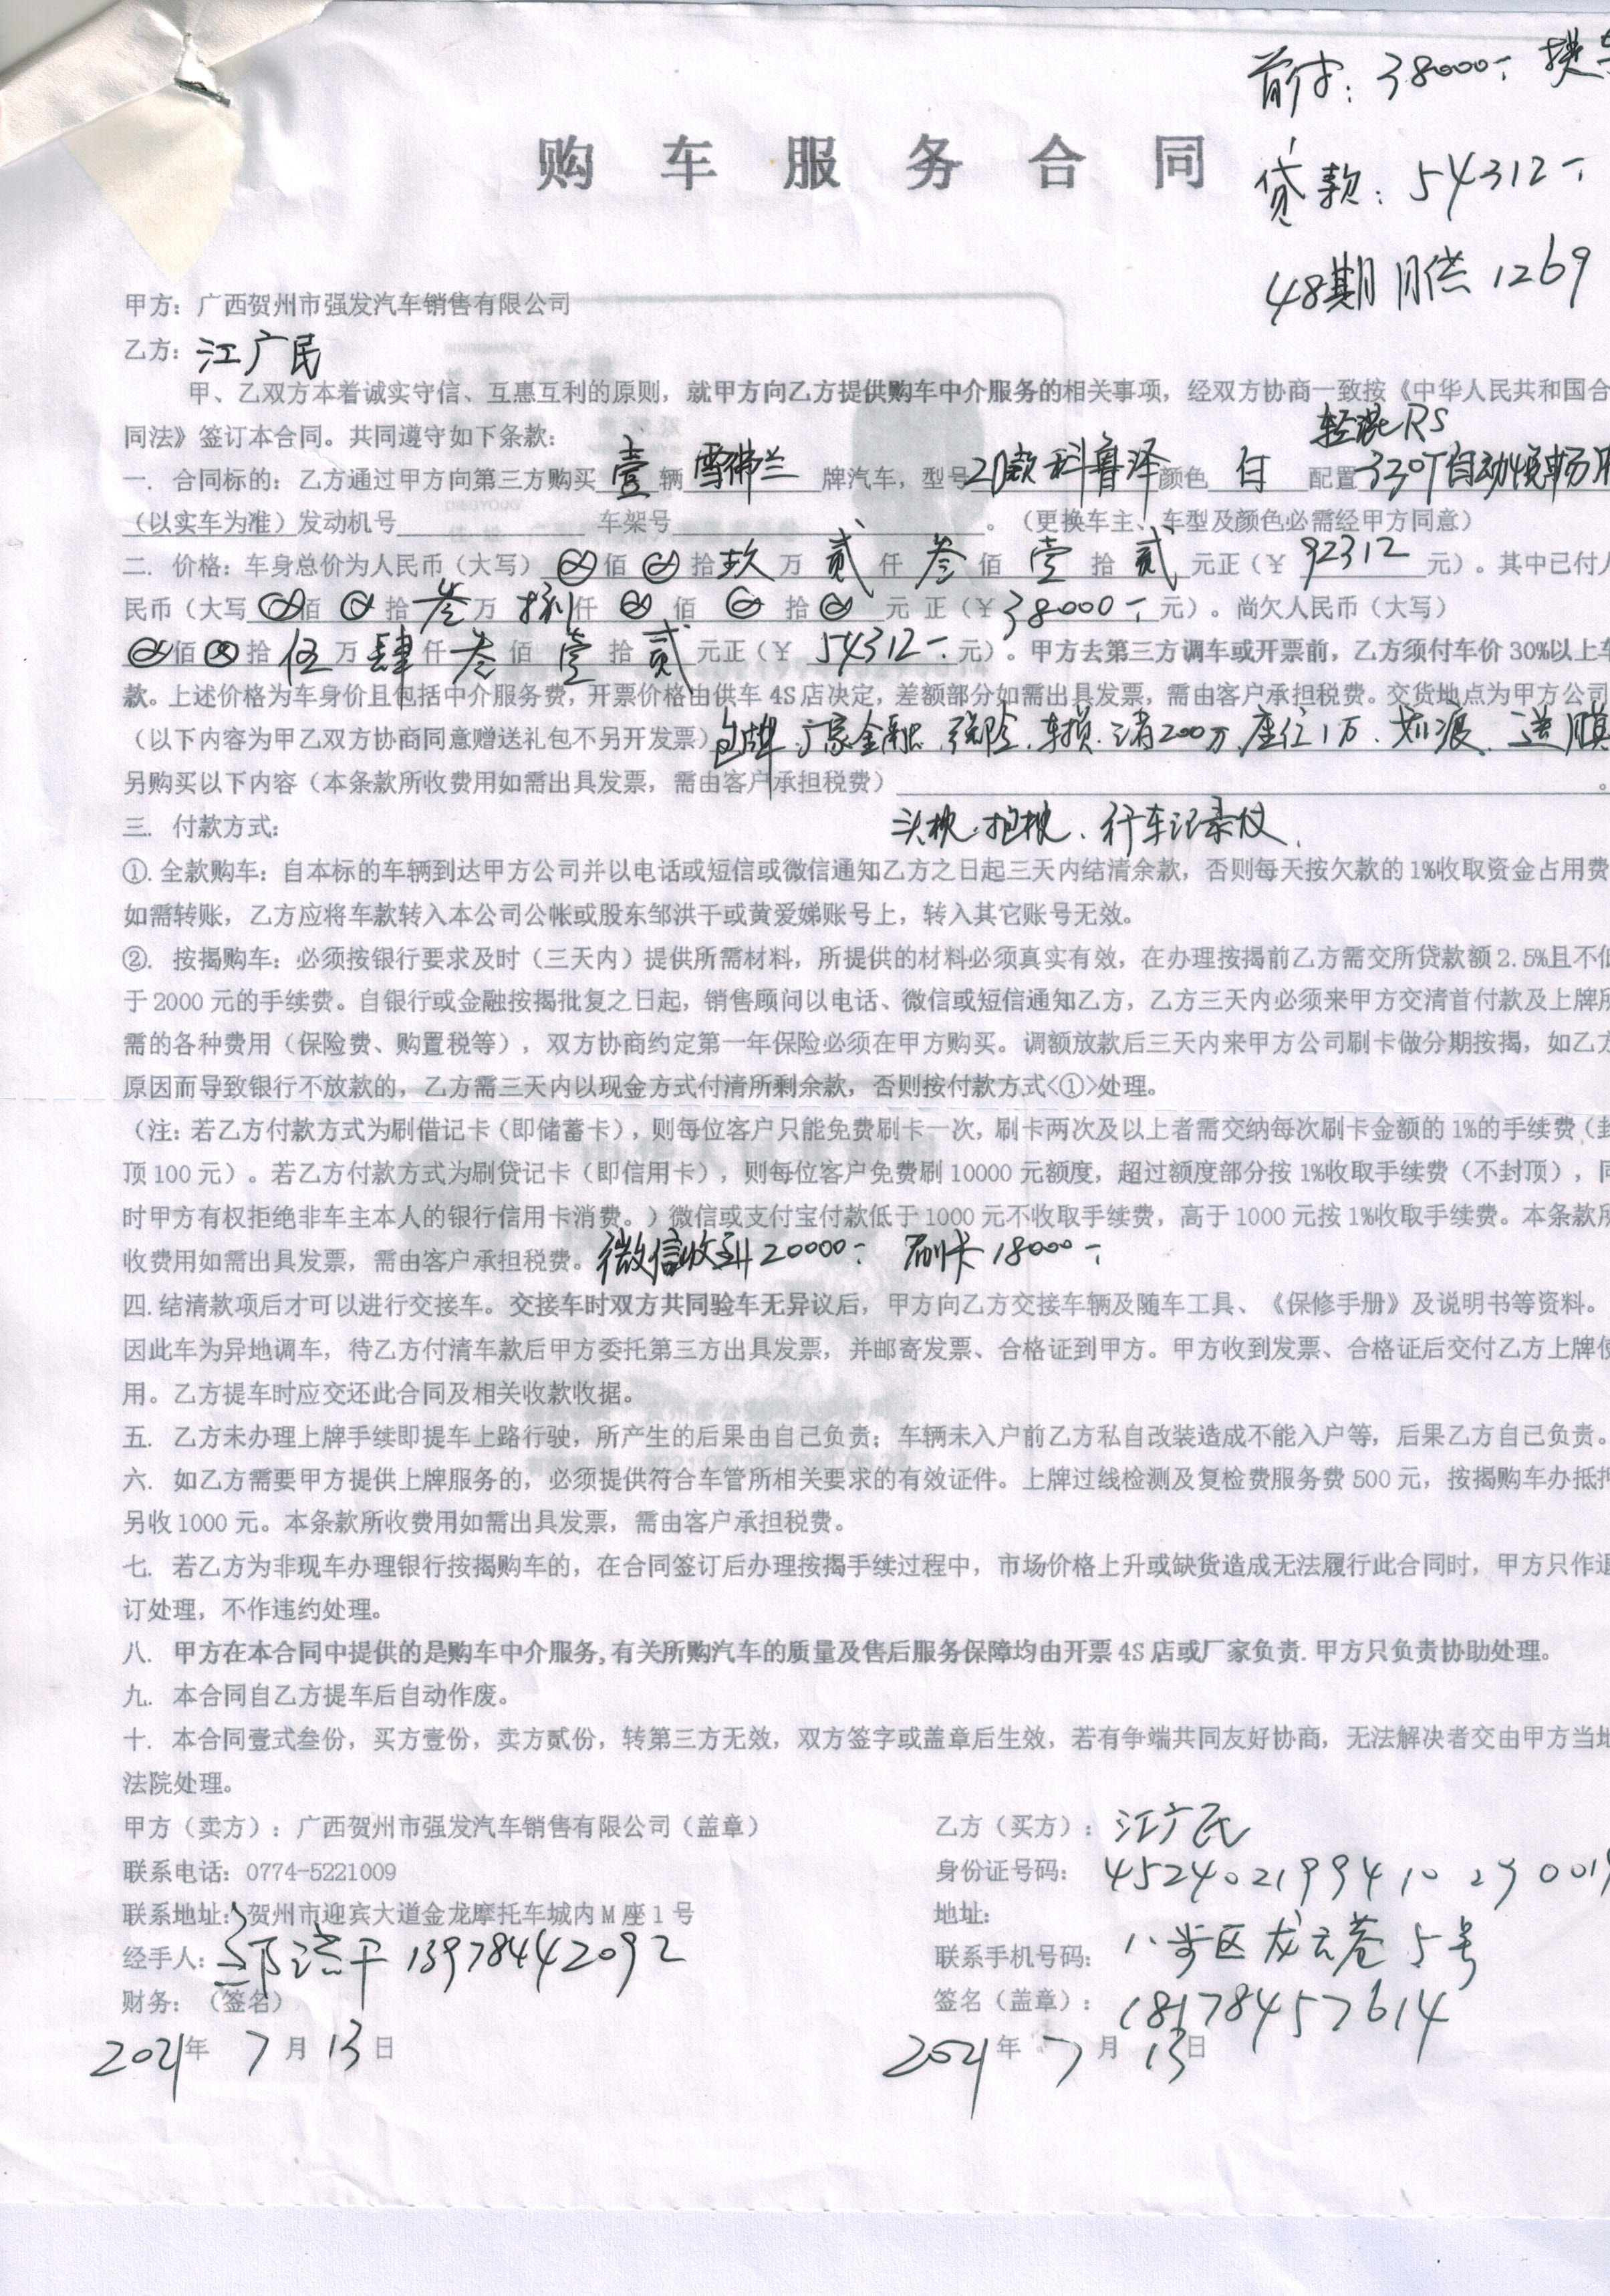 首付：38000.-
购车服务合同
贷款：54312.-
48期 月供 1269
甲方：广西贺州市强发汽车销售有限公司
乙方：江广民
甲、乙双方本着诚实守信、互惠互利的原则，就甲方向乙方提供购车中介服务的相关事项，经双方协商一致按《中华人民共和国合
同法》签订本合同。共同遵守如下条款：
轻混RS
一. 合同标的：乙方通过甲方向第三方购买 壹 辆 雪佛兰 牌汽车，型号 21款科鲁泽 颜色 白 配置 320T自动悦畅版
（以实车为准）发动机号 车架号 。（更换车主、车型及颜色必需经甲方同意）
二. 价格：车身总价为人民币（大写）⊗佰⊗拾玖万贰仟叁佰壹拾贰元正（￥92312元）。其中已付人
民币（大写⊗佰⊗拾叁万捌仟⊗佰⊗拾⊗元正（￥38000.-元）。尚欠人民币（大写）
⊗佰⊗拾伍万肆仟叁佰壹拾贰元正（￥54312.-元）。甲方去第三方调车或开票前，乙方须付车价30%以上车
款。上述价格为车身价且包括中介服务费，开票价格由供车4S店决定，差额部分如需出具发票，需由客户承担税费。交货地点为甲方公司
（以下内容为甲乙双方协商同意赠送礼包不另开发票）包牌、厂家金融、强险、车损、三者200万、座位1万、划痕、送膜
另购买以下内容（本条款所收费用如需出具发票，需由客户承担税费）。
头枕、抱枕、行车记录仪、
三. 付款方式：
①. 全款购车：自本标的车辆到达甲方公司并以电话或短信或微信通知乙方之日起三天内结清余款，否则每天按欠款的1%收取资金占用费
如需转账，乙方应将车款转入本公司公帐或股东邹洪干或黄爱娣账号上，转入其它账号无效。
②. 按揭购车：必须按银行要求及时（三天内）提供所需材料，所提供的材料必须真实有效，在办理按揭前乙方需交所贷款额2.5%且不低
于2000元的手续费。自银行或金融按揭批复之日起，销售顾问以电话、微信或短信通知乙方，乙方三天内必须来甲方交清首付款及上牌所
需的各种费用（保险费、购置税等），双方协商约定第一年保险必须在甲方购买。调额放款后三天内来甲方公司刷卡做分期按揭，如乙方
原因而导致银行不放款的，乙方需三天内以现金方式付清所剩余款，否则按付款方式<①>处理。
（注：若乙方付款方式为刷借记卡（即储蓄卡），则每位客户只能免费刷卡一次，刷卡两次及以上者需交纳每次刷卡金额的1%的手续费（封
顶100元）。若乙方付款方式为刷贷记卡（即信用卡），则每位客户免费刷10000元额度，超过额度部分按1%收取手续费（不封顶），同
时甲方有权拒绝非车主本人的银行信用卡消费。）微信或支付宝付款低于1000元不收取手续费，高于1000元按1%收取手续费。本条款所
收费用如需出具发票，需由客户承担税费。微信收到20000.- 刷卡18000.-
四. 结清款项后才可以进行交接车。交接车时双方共同验车无异议后，甲方向乙方交接车辆及随车工具、《保修手册》及说明书等资料。
因此车为异地调车，待乙方付清车款后甲方委托第三方出具发票，并邮寄发票、合格证到甲方。甲方收到发票、合格证后交付乙方上牌使
用。乙方提车时应交还此合同及相关收款收据。
五. 乙方未办理上牌手续即提车上路行驶，所产生的后果由自己负责；车辆未入户前乙方私自改装造成不能入户等，后果乙方自己负责。
六. 如乙方需要甲方提供上牌服务的，必须提供符合车管所相关要求的有效证件。上牌过线检测及复检费服务费500元，按揭购车办抵押
另收1000元。本条款所收费用如需出具发票，需由客户承担税费。
七. 若乙方为非现车办理银行按揭购车的，在合同签订后办理按揭手续过程中，市场价格上升或缺货造成无法履行此合同时，甲方只作退
订处理，不作违约处理。
八. 甲方在本合同中提供的是购车中介服务,有关所购汽车的质量及售后服务保障均由开票4S店或厂家负责.甲方只负责协助处理。
九. 本合同自乙方提车后自动作废。
十. 本合同壹式叁份，买方壹份，卖方贰份，转第三方无效，双方签字或盖章后生效，若有争端共同友好协商，无法解决者交由甲方当地
法院处理。
甲方（卖方）：广西贺州市强发汽车销售有限公司（盖章） 乙方（买方）：江广民
联系电话：0774-5221009 身份证号码：452402199410290019
联系地址：贺州市迎宾大道金龙摩托车城内M座1号 地址：
经手人：邹洪干 13978442092 联系手机号码：八步区龙云巷5号
财务：（签名） 签名（盖章）：18178457614
2021年7月13日 2021年7月13日